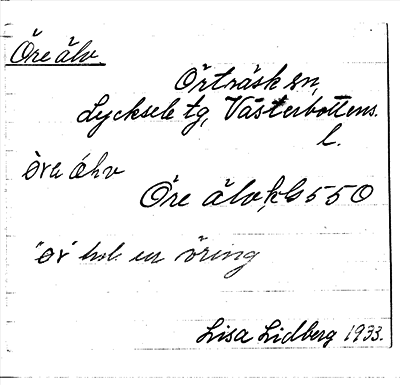 Öre älv
Örträsk sn,
Lycksele tg, Västerbottens
l.
Öre älv, kb 550
en öring
Lisa Lidberg 1933.